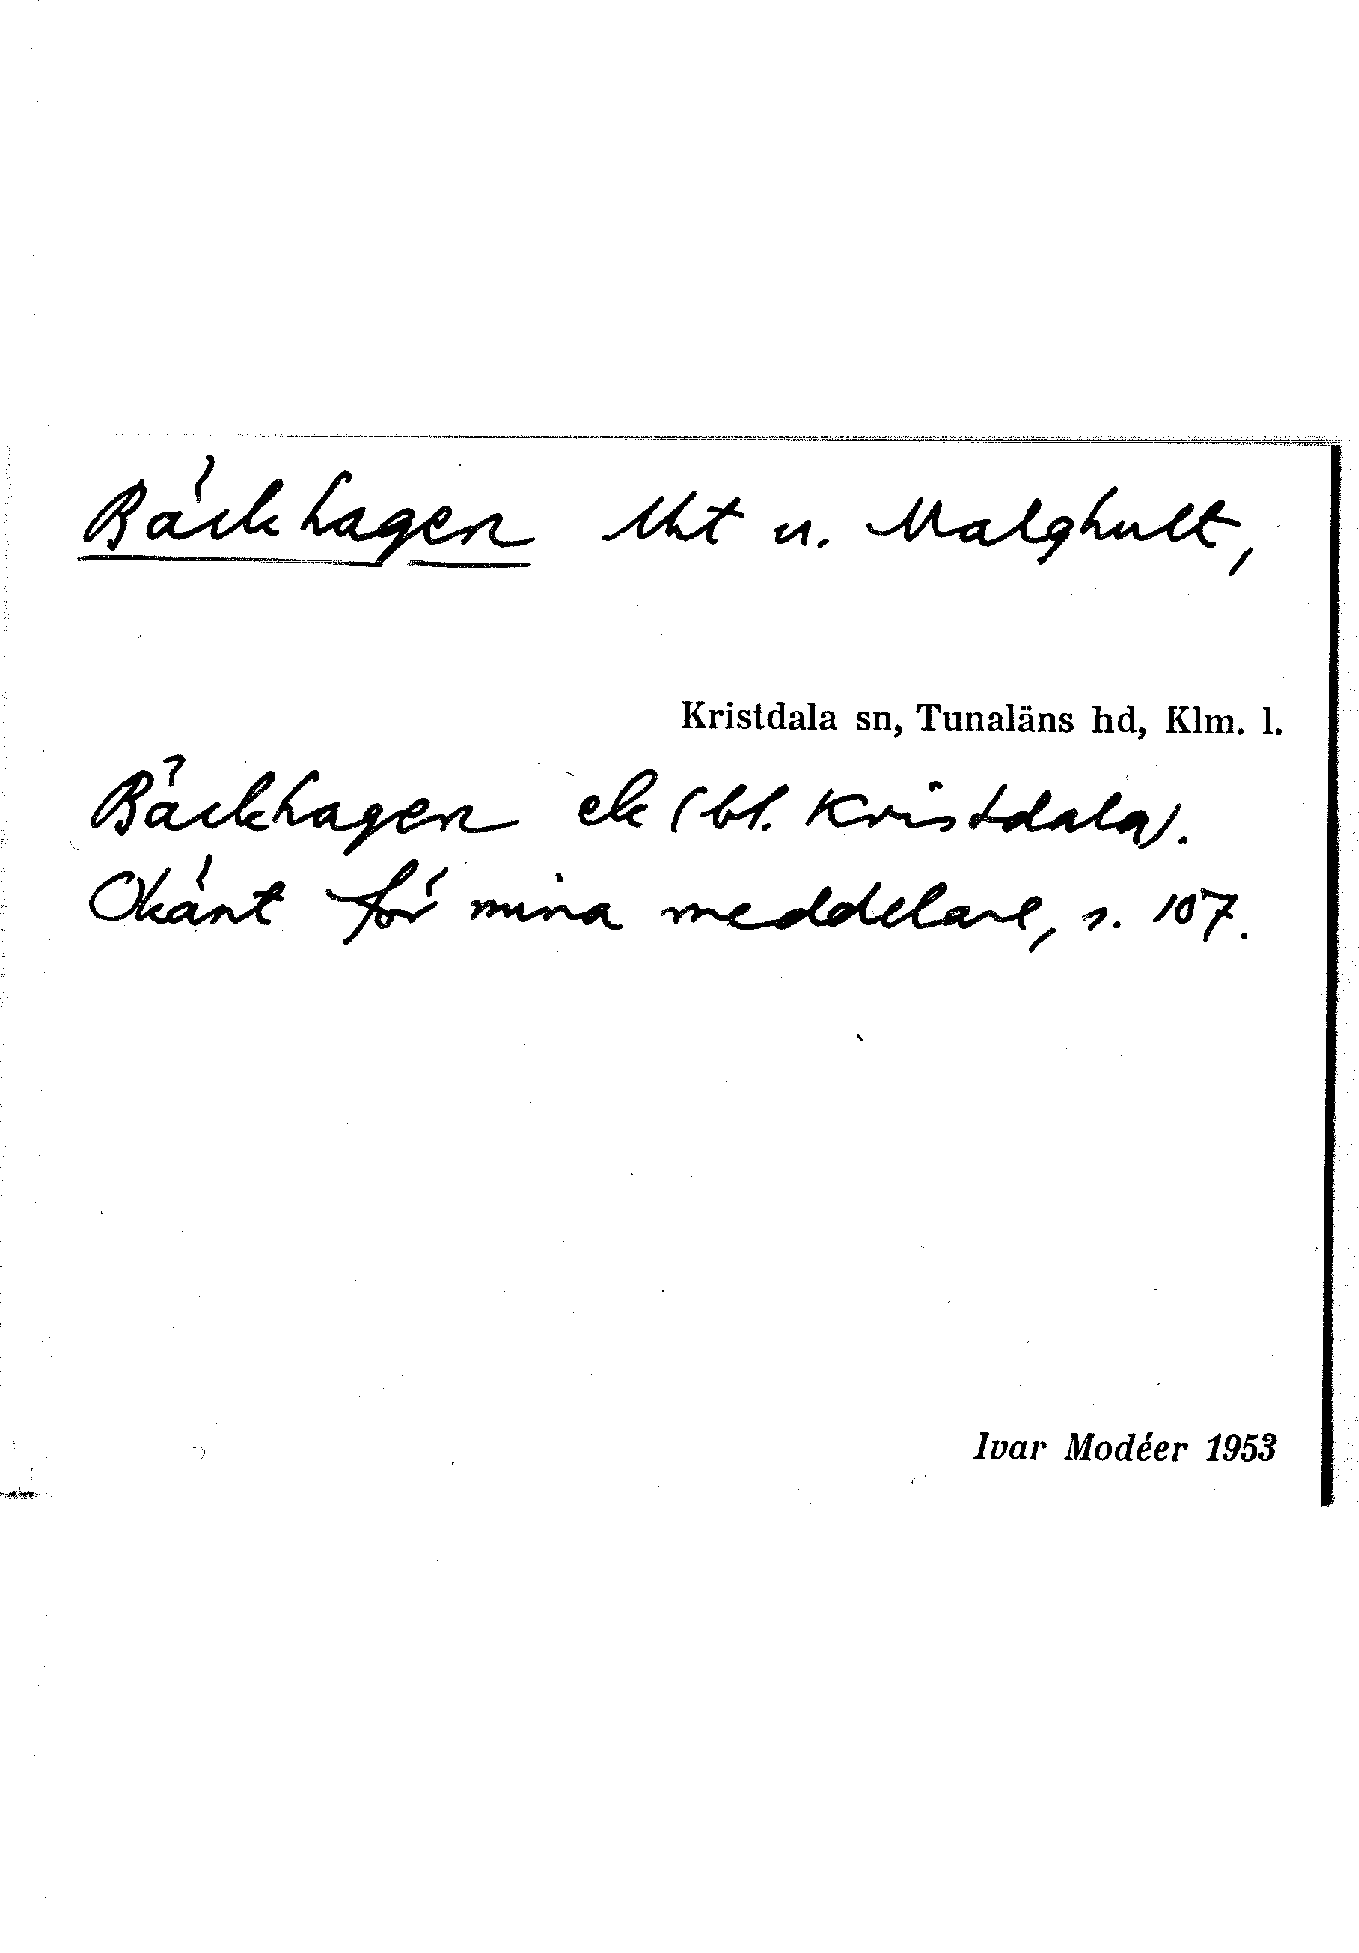 Bäckhagen lht u. Malghult,
Kristdala sn, Tunaläns hd, Klm. l.
Bäckhagen ek (bl. Kristdala).
Okänt för mina meddelare, s. 107.
Ivar Modéer 1953